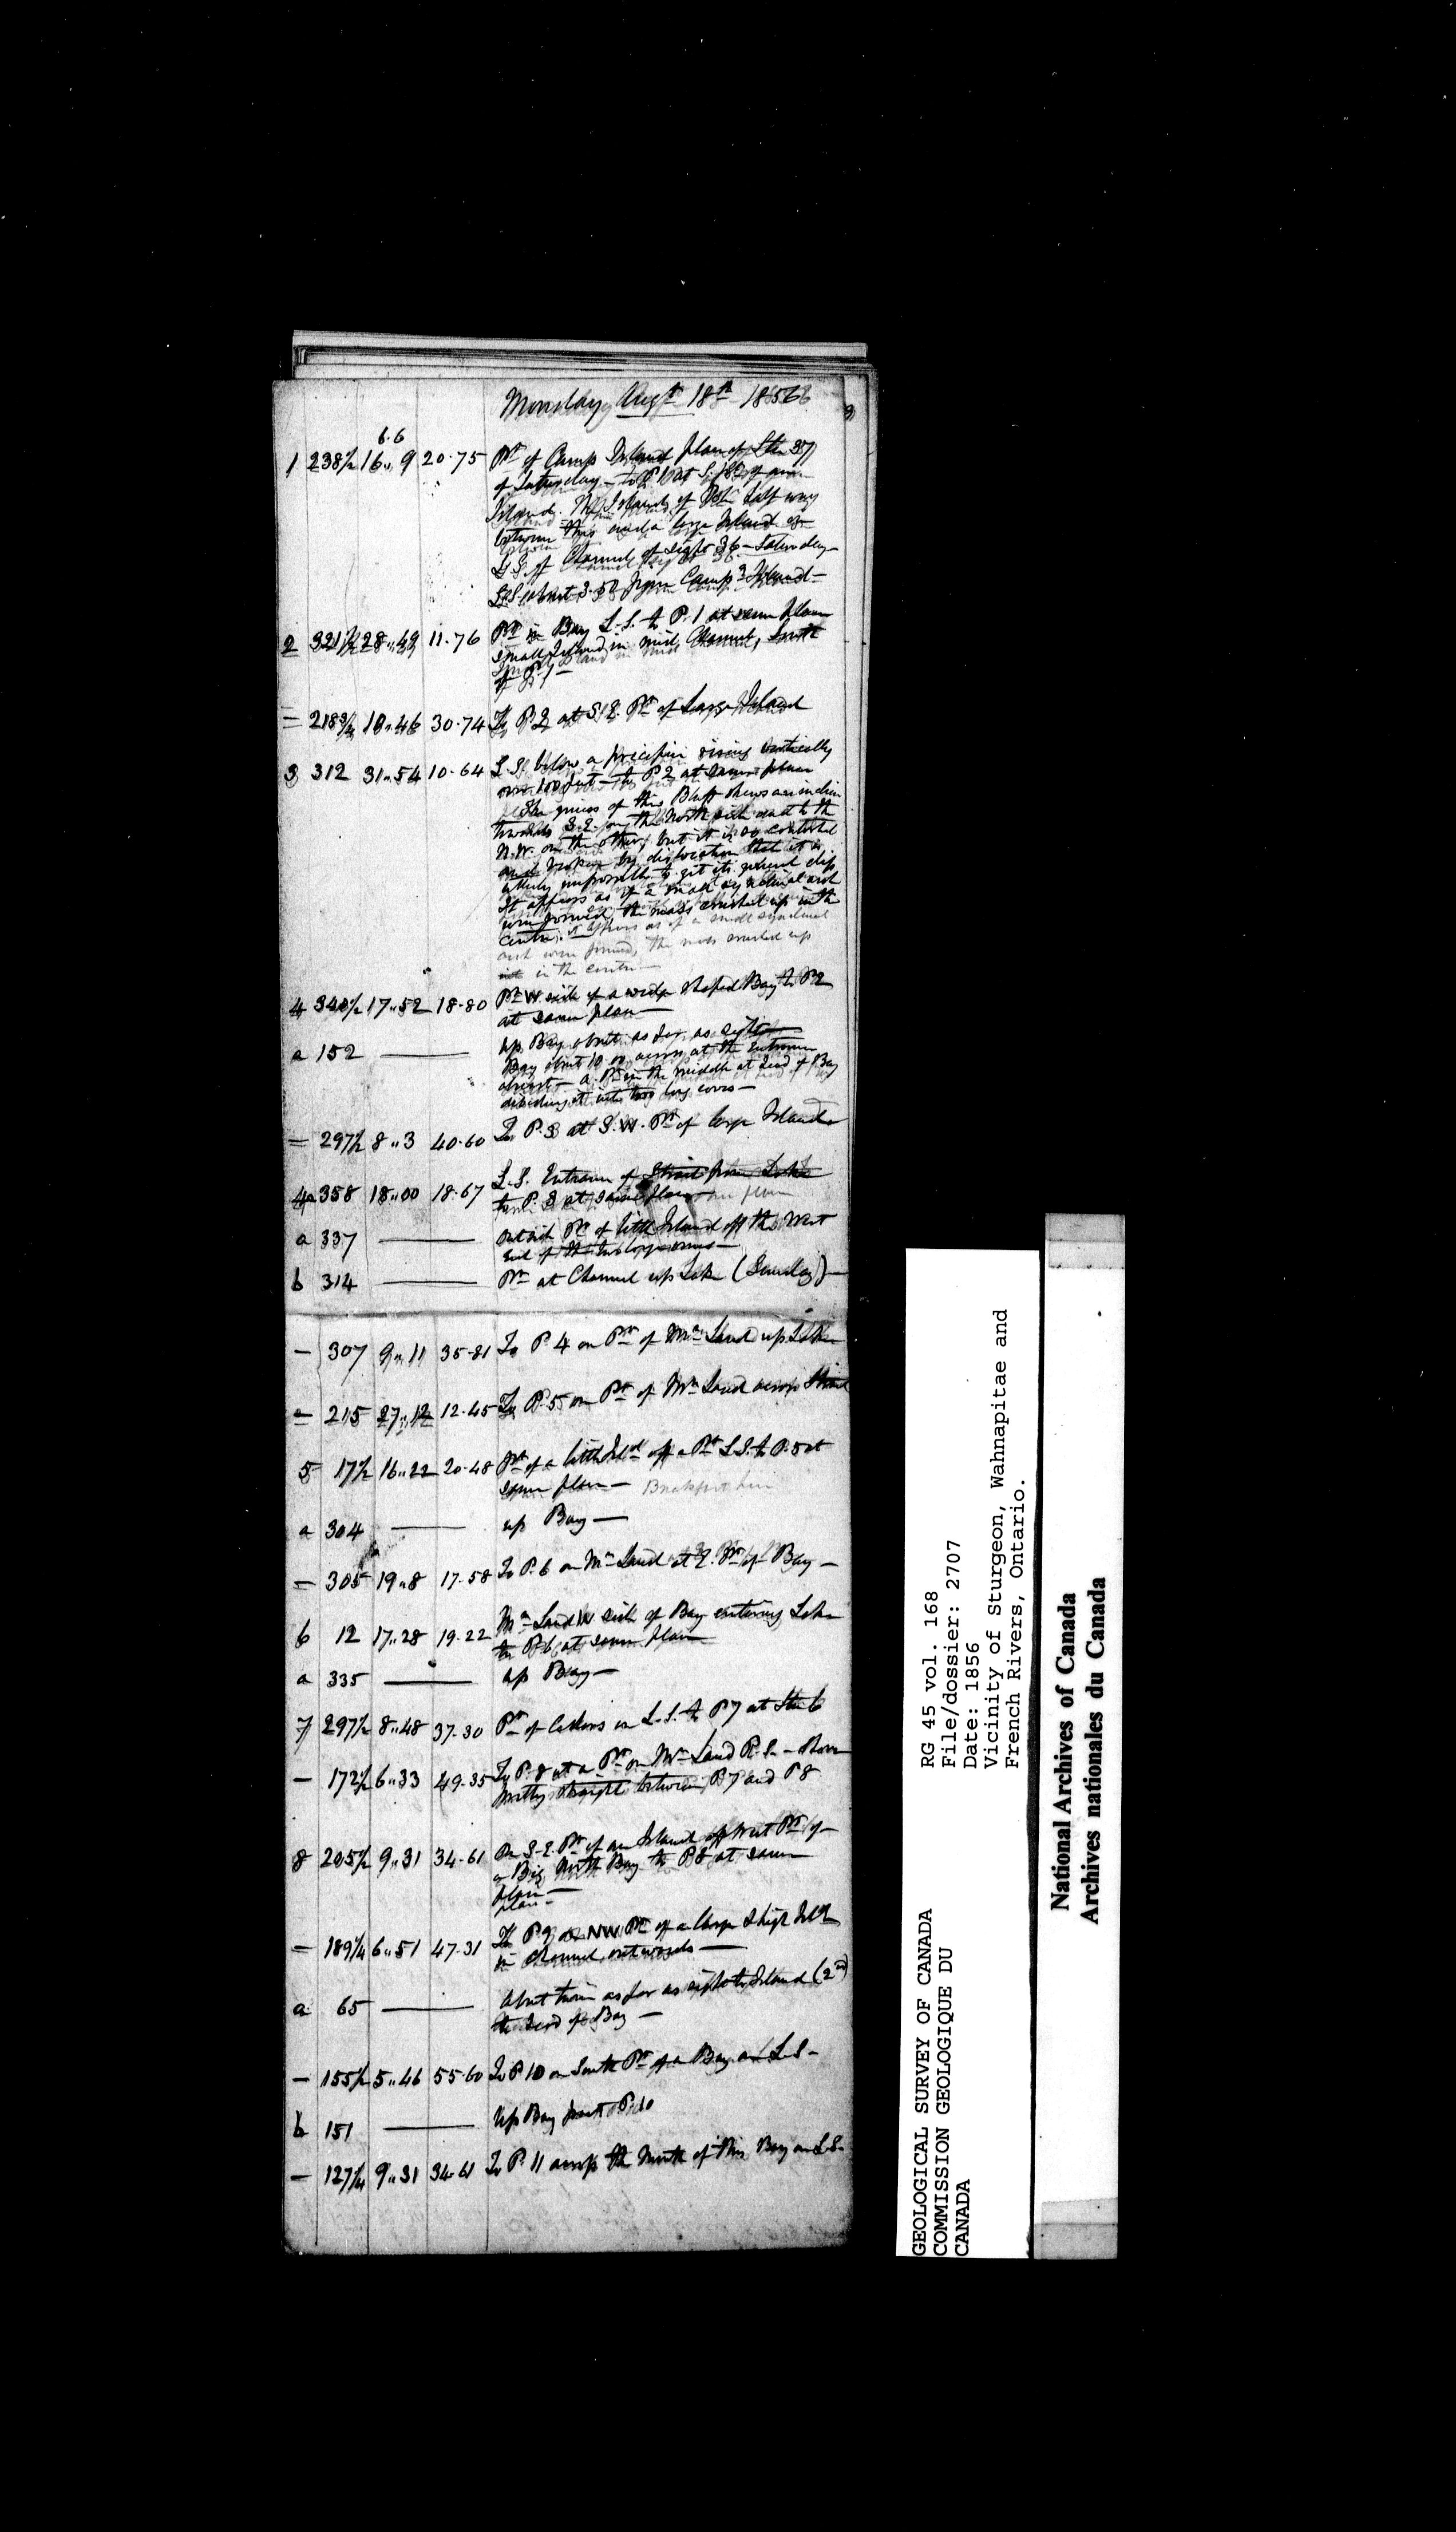 Monday Augt 18th 1856
6.6
1 238½ 16..9 20.75 Pt of Camp Island place of Stn 37
of Saturday — to P.1 at S. of
Island. Islands of half way
between this and a large Island
L.S. of Channel of sight 36 — Saturday —
L.S. about 3.50 from Camp Island —
2 321½ 28..49 11.76 Pt in Bay L.S. to P.1 at same place
small Island in mid Channel, South
of P.1 —
= 218¾ 10..46 30.74 To P2 at S.E. Pt of Large Island
3 312 31..54 10.64 L.S. below a precipice rising vertically
over 100 feet — to P2 at same place
The gneiss of this Bluff shews an
towards S.E. on the North side and to the
N.W. on the other, but it is so contorted
and broken by dislocation that it is
utterly impossible to get its general dip
It appears as if a small synclinal and
were formed, the mass crushed up in the
centre. It appears as if a small synclinal
were formed, the mass crushed up
in the centre —
4 340½ 17..52 18.80 Pt W. side of a wedge shaped Bay to P2
at same place —
a 152 up Bay about as far as sight
Bay about 10.00 across at the entrance
about — a Pt in the middle at head of Bay
dividing it into two long coves —
= 297½ 8..3 40.60 To P.3 at S.W. Pt of large Island
4a 358 18..00 18.67 L.S. Entrance of Strait from Lake
to P.3 at same place
a 337 outside Pt of little Island off the West
end of the two large ones —
b 314 Pt at Channel up Lake (Sunday) —
— 307 9..11 35.81 To P.4 on Pt of Mn Land up Lake
= 215 27..12 12.45 To P.5 on Pt of Mn Land across Strait
5 17½ 16..22 20.48 Pt of a little Isld off a Pt L.S. to P.5 at
same place — Breakfast here
a 304 up Bay —
— 305 19..8 17.58 To P.6 on Mn Land at E. Pt of Bay —
6 12 17..28 19.22 Mn Land W side of Bay entering Lake
to P.6 at same place
a 335 up Bay —
7 297½ 8..48 37.30 Pt of on L.S. to P7 at Stn 6
— 172½ 6..33 49.35 To P.8 at a Pt on Mn Land R.S. — Shore
pretty straight between P7 and P8
8 205½ 9..31 34.61 On S.E. Pt of an Island off West Pt of
a Big North Bay to P8 at same
place —
plan —
— 189¼ 6..51 47.31 To P.9 on NW Pt of a large & high Isld
in Channel, outwards —
a 65 About twice as far as sight to Island (2nd)
to head of Bay —
— 155½ 5..46 55.60 To P.10 on South Pt of a Bay on L.S —
b 151 Up Bay past P.10
— 127¼ 9..31 34.61 To P.11 across the Mouth of this Bay on L.S.
GEOLOGICAL SURVEY OF CANADA
COMMISSION GEOLOGIQUE DU
CANADA
RG 45 vol. 168
File/dossier: 2707
Date: 1856
Vicinity of Sturgeon, Wahnapitae and
French Rivers, Ontario.
National Archives of Canada
Archives nationales du Canada